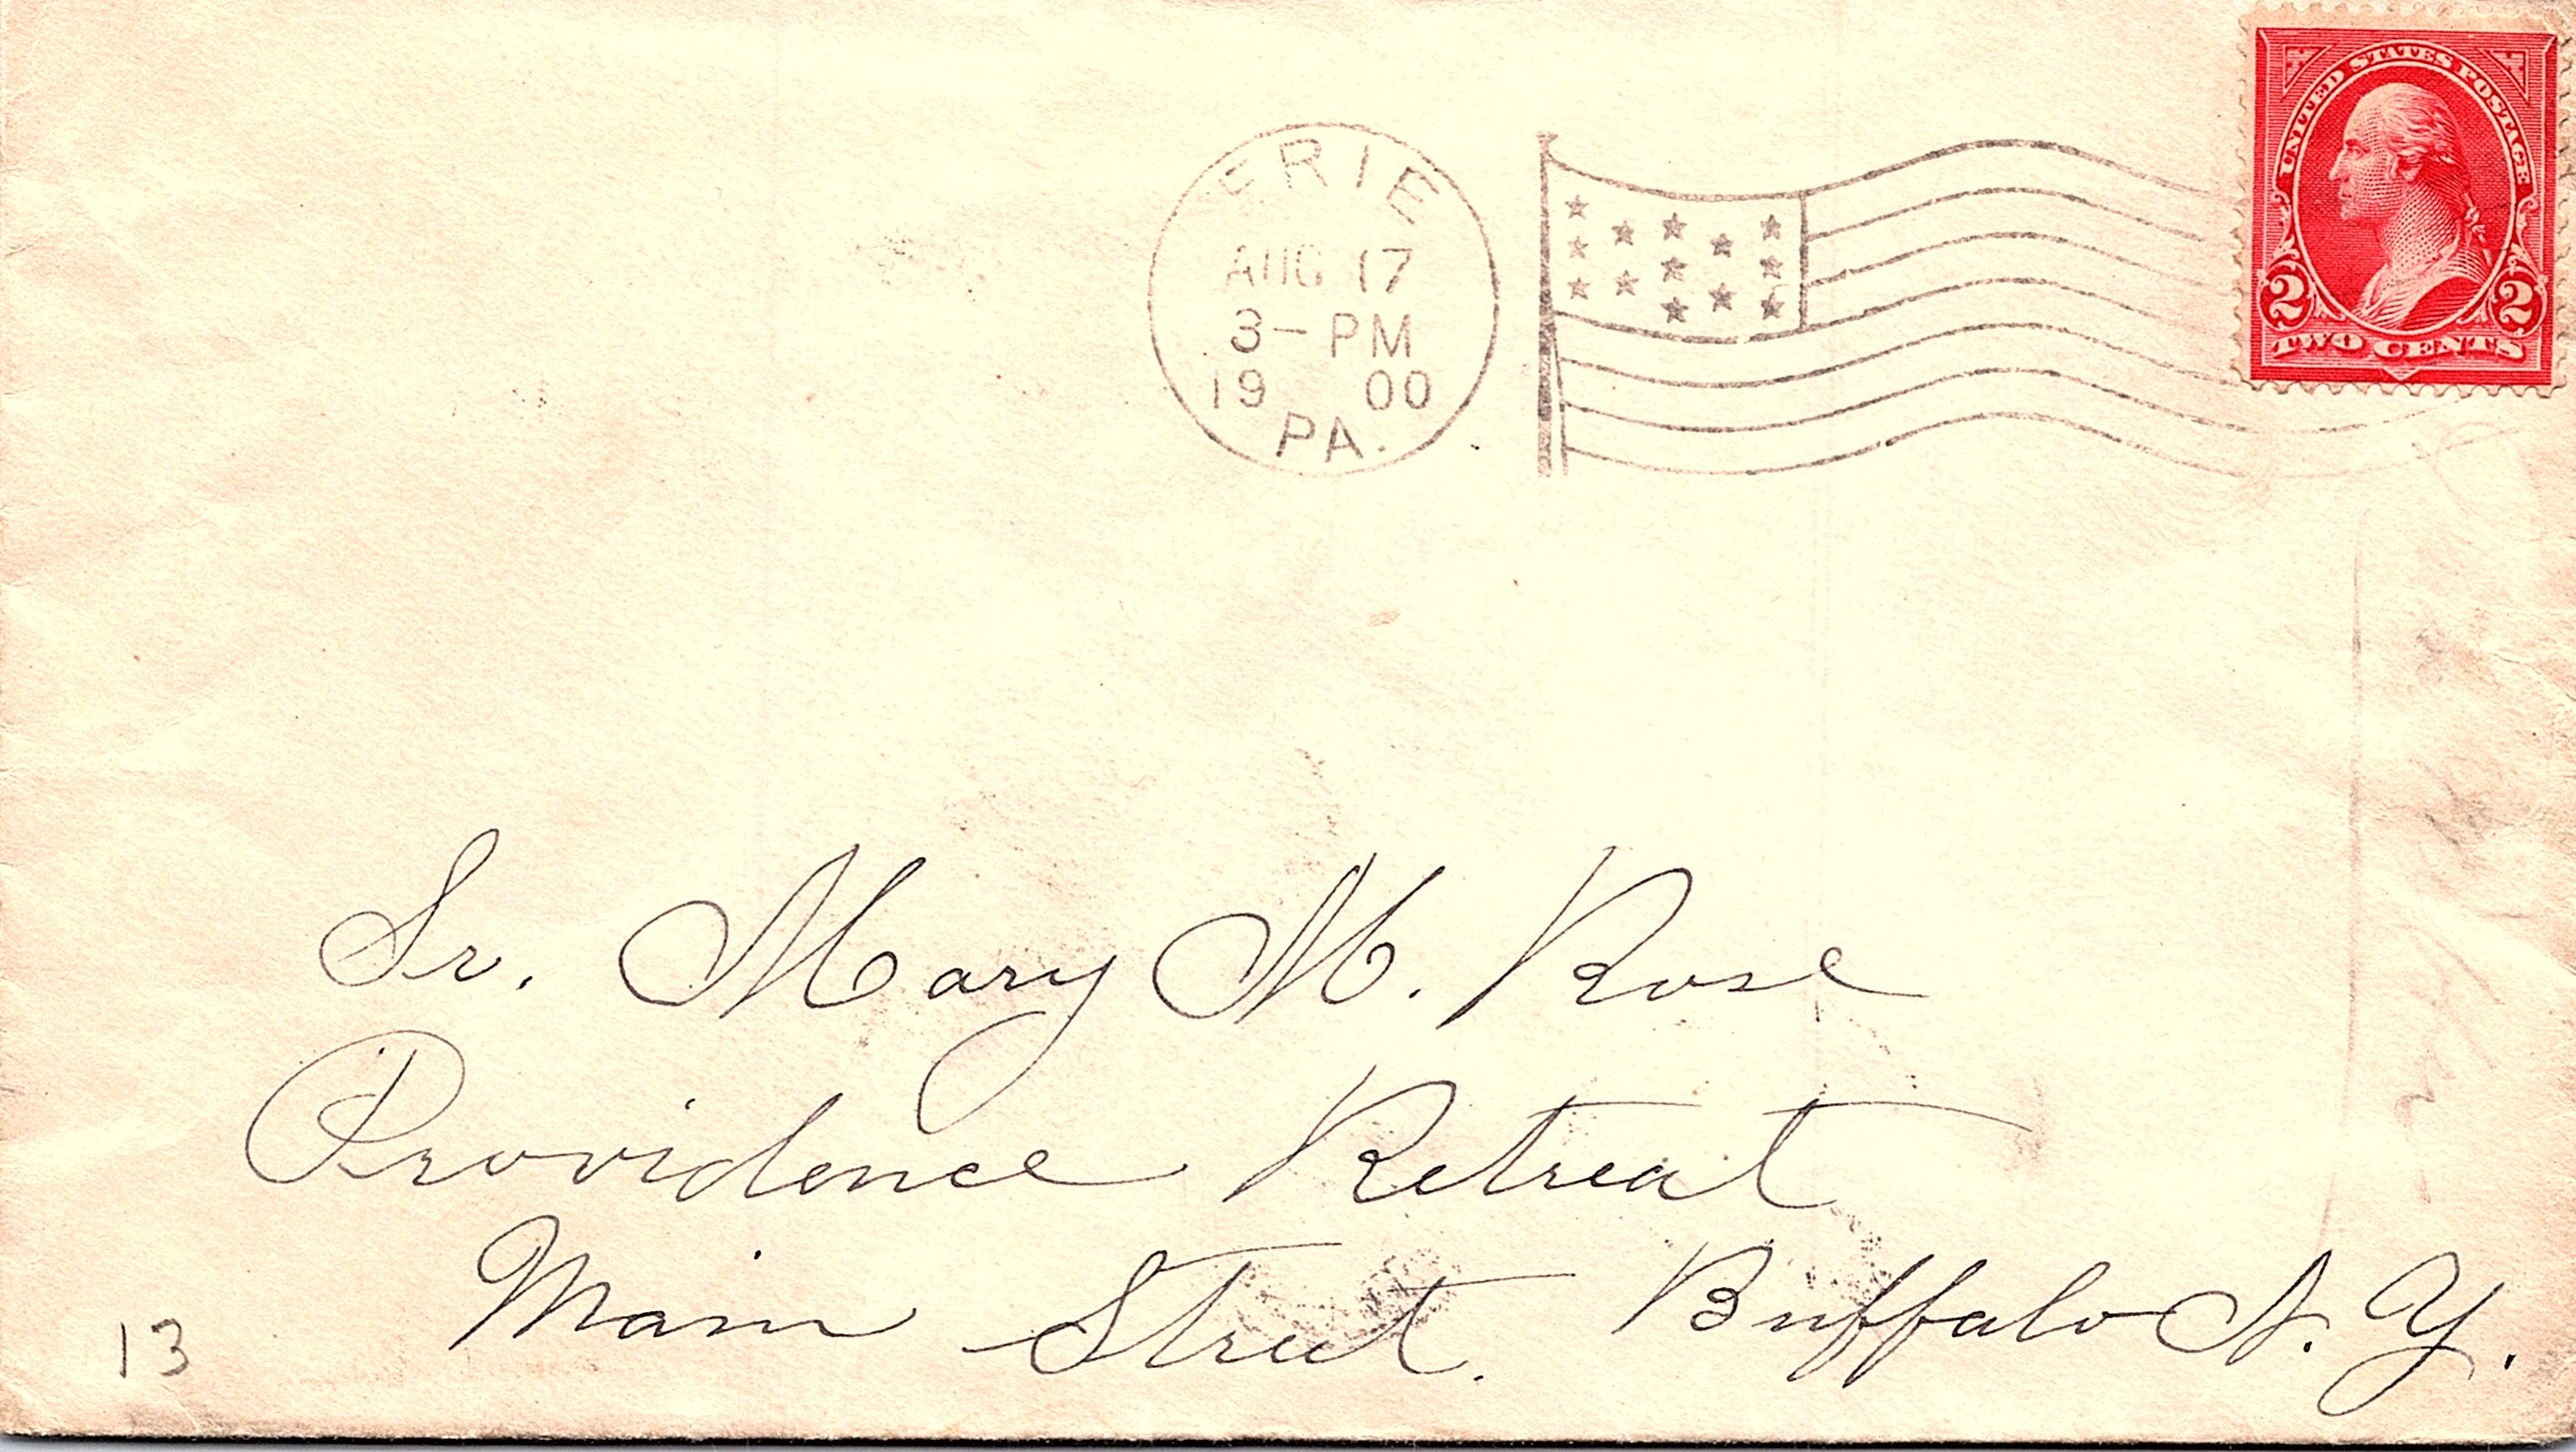 UNITED STATES POSTAGE
2 2
TWO CENTS
ERIE
AUG 17
3- PM
19 00
PA.
Sr. Mary M. Rose
Providence Retreat
Main Street. Buffalo N. Y.
13